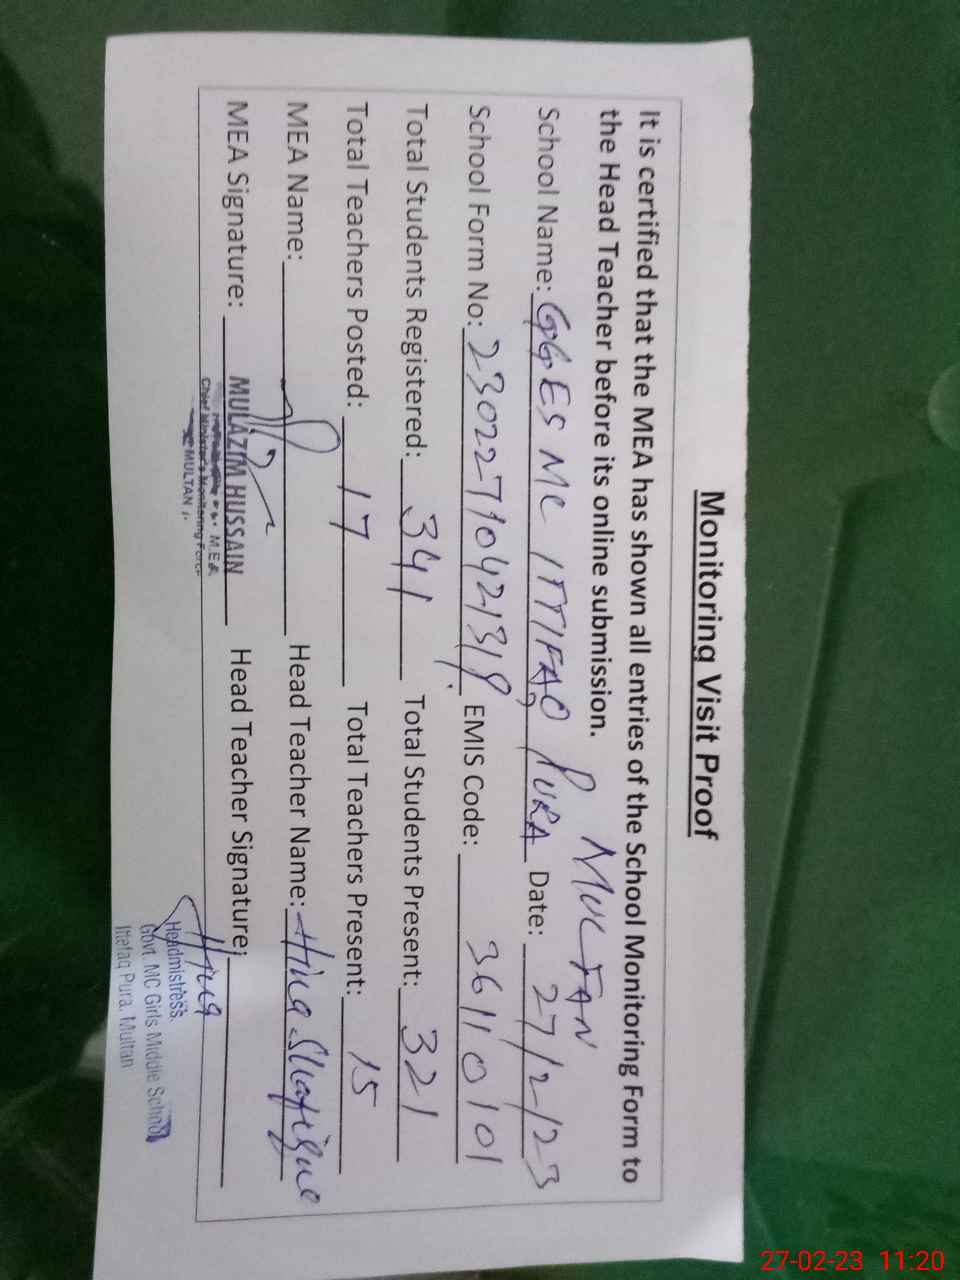 Monitoring Visit Proof
It is certified that the MEA has shown all entries of the School Monitoring Form to
the Head Teacher before its online submission.
MULTAN
School Name: GGES MC ITTIFAQ PURA Date: 27/2/23
School Form No: 23022710421319 EMIS Code: 36110101
Total Students Registered: 341 Total Students Present: 321
Total Teachers Posted: 17 Total Teachers Present: 15
MEA Name: Head Teacher Name: Hina Shafique
MEA Signature: Head Teacher Signature: Hina
MULAZIM HUSSAIN
M.E.A
Chief Minister's Monitoring Force
MULTAN
Headmistress.
Govt. MC Girls Middle School
Ittefaq Pura, Multan
27-02-23 11:20